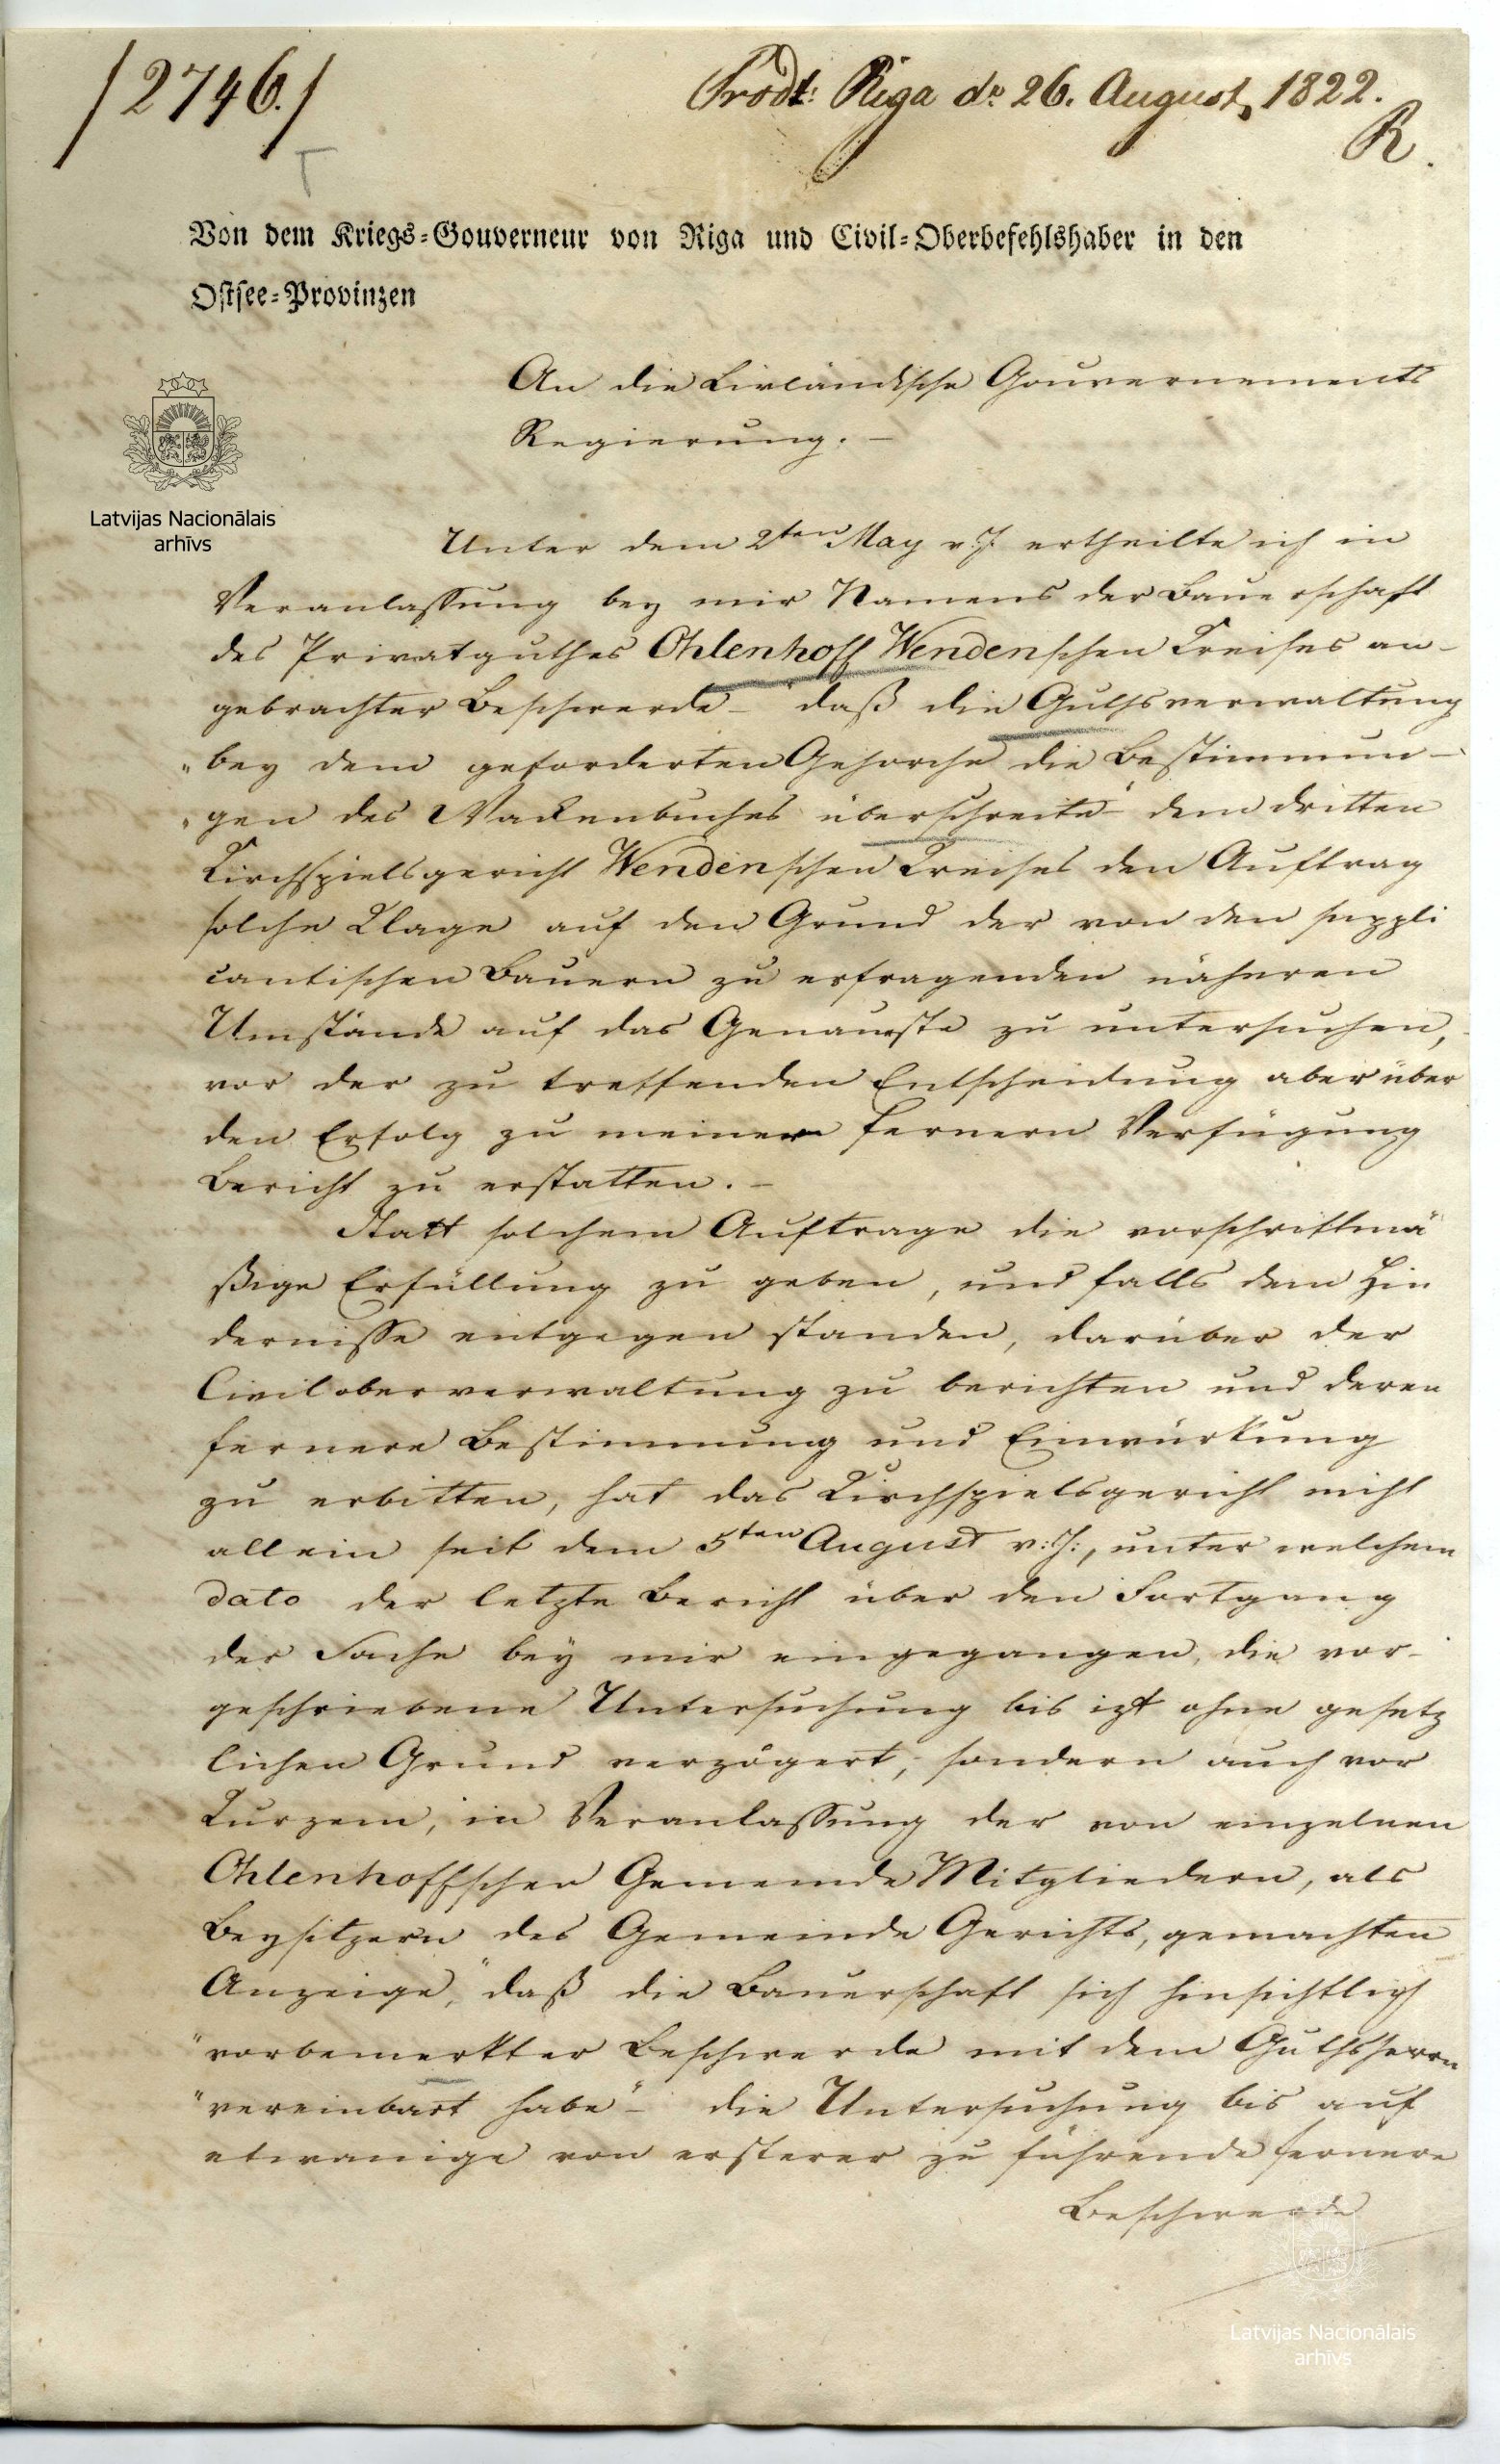 /2746./
Prodt: Riga d. 26. August, 1822.
R.
Von dem Kriegs=Gouverneur von Riga und Civil=Oberbefehlshaber in den
Ostsee=Provinzen
An die Livländische Gouvernements
Regierung. –
Latvijas Nacionālais
arhīvs
Unter dem 2ten May v: J: ertheilte ich in
Veranlassung bey mir Namens der Bauerschaft
des Privatguthes Ohlenhoff Wendenschen Kreises an-
gebrachter Beschwerde – daß die Guthsverwaltung
"bey dem geforderten Gehorche die Bestimmun-
"gen des Wackenbuches überschreite" – dem dritten
Kirchspielsgericht Wendenschen Kreises den Auftrag
solche Klage auf den Grund der von den suppli
cantischen Bauern zu erfragenden näheren
Umstände auf das Genaueste zu untersuchen,
vor der zu treffenden Entscheidung aber über
den Erfolg zu meiner fernern Verfügung
Bericht zu erstatten. –
Statt solchem Auftrage die vorschriftmä
ßige Erfüllung zu geben, und falls dem Hin
dernisse entgegen standen, darüber der
Civiloberverwaltung zu berichten und deren
fernere Bestimmung und Einwürkung
zu erbitten, hat das Kirchspielsgericht nicht
allein seit dem 5ten August v: J:, unter welchem
dato der letzte Bericht über den Fortgang
der Sache bey mir eingegangen, die vor-
geschriebene Untersuchung bis izt ohne gesetz
lichen Grund verzögert, sondern auch vor
Kurzem, in Veranlassung der von einzelnen
Ohlenhoffschen Gemeinde Mitgliedern, als
Beysitzern des Gemeinde Gerichts, gemachten
Anzeige, "daß die Bauerschaft sich hinsichtlich
"vorbemerkter Beschwerde mit dem Guthsherrn
"vereinbart habe" – die Untersuchung bis auf
etwanige von ersterer zu führende fernere
Beschwerde
Latvijas Nacionālais
arhīvs